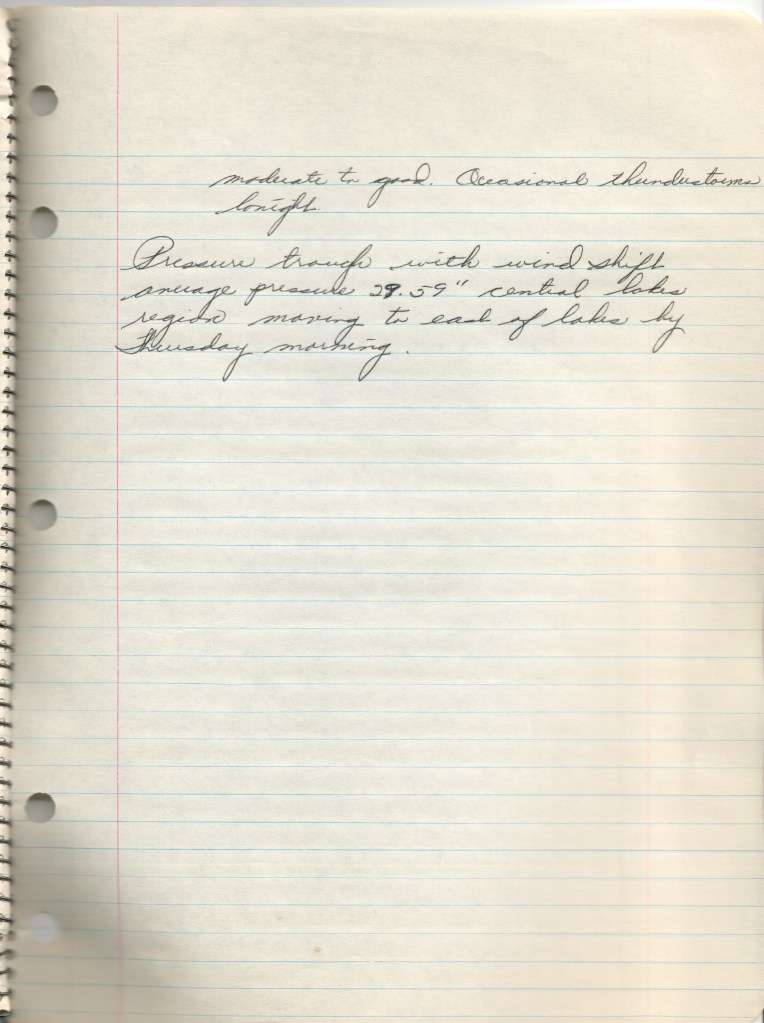 moderate to good. Occasional thunderstorms
tonight.
Pressure trough with wind shift
average pressure 29.59" central lakes
region moving to east of lakes by
Thursday morning.